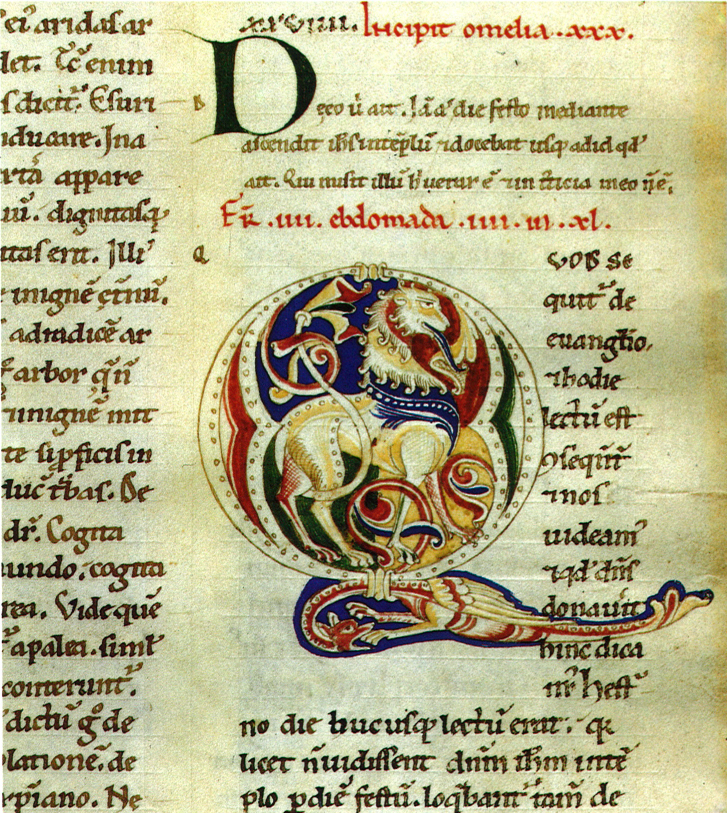 aridas ar
enim
dicit̄. Esuri
nduare. Ina
rtā appare
ui. dignitasq;
utas erit. Illi᾽
inignē
adradicē ar
arbor
inignē mit
te suꝑficis in
De
dr̄. Cogita
undo. cogita
rea. Vide quē
apalea. simł
conterunt᾽.
dictū g̊ de
latione. de
piano. Ne
xxviiii. Incipit omelia .xxx.
D
Deco ū ait. Iā ā die festo mediante
ascendit ih̄s inteplū ⁊ docebat usq; adid qd᾽
ait. Qui misit illū h̄ uerax ē ⁊ in in eo n̄ ē.
Fr̄. iiii. ebdomada .iiii. in .xl.
Q
QVOD se
quit᾽ de
euangl̄io.
⁊ hodie
lectū est
ꝯseqūt᾽
⁊ nos
uideam᾽
⁊ qd᾽ dn̄s
donauit
hinc dica
m᾽. hest᾽
no die hucusq; lectū erat. q̄
licet n̄ uidissent dn̄m ih̄m inte
plo ꝑ diē festū. loq̄bant᾽ tam̄ de